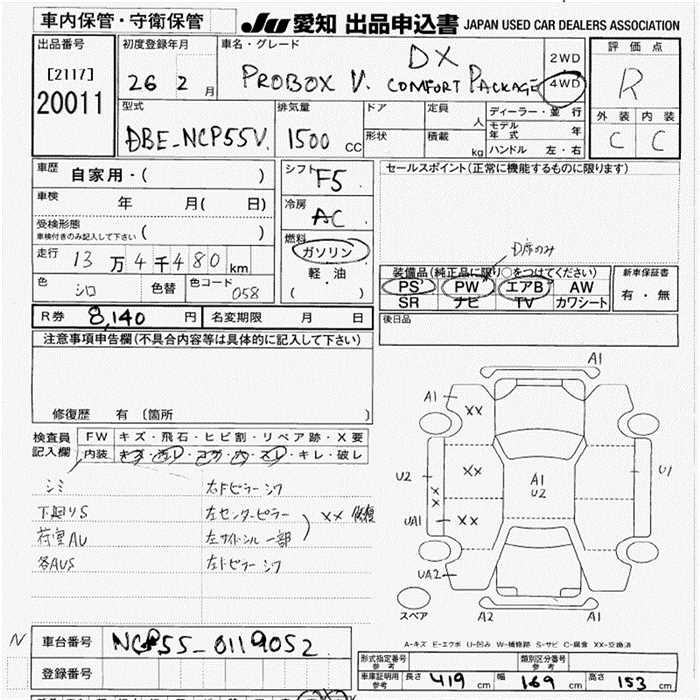 車内保管・守衛保管
JU 愛知 出品申込書 JAPAN USED CAR DEALERS ASSOCIATION
出品番号
[2117]
20011
初度登録年月
26 2 月
車名・グレード
DX
PROBOX V. COMFORT PACKAGE
2WD
4WD
評価点
R
外装 内装
C C
型式
DBE-NCP55V
排気量
1500 cc
ドア
定員
人
形状
積載
kg
ディーラー・並行
モデル年式 年
ハンドル 左・右
車歴
自家用・( )
車検
年 月( 日)
受検形態
車検付きのみ記入して下さい ( )
走行
13 万 4 千 480 km
色 シロ 色替 色コード 058
シフト
F5
冷房
AC
燃料
ガソリン
軽・油
( )
セールスポイント(正常に機能するものに限ります)
D席のみ
装備品(純正品に限り○をつけてください)
PS PW エアB AW
SR ナビ TV カワシート
新車保証書
有・無
R券 8,140 円 名変期限 月 日
後日品
注意事項申告欄(不具合内容等は具体的に記入して下さい)
修復歴 有 〔箇所 〕
検査員
記入欄
FW キズ・飛石・ヒビ割・リペア跡・X要
内装 キズ・汚レ・コゲ・穴・スレ・キレ・破レ
シミ 右Fピラーシワ
下廻りS 左センターピラー
XX 修復
荷室AU 左サイドシル一部
各AUS 左Fピラーシワ
A1
A1
XX
U2
XX
XX
A1
U2
U1
UA1
XX
UA2
スペア
A2
A1
A-キズ E-エクボ U-凹み W-補修跡 S-サビ C-腐食 XX-交換済
N
車台番号 NCP55-0119052
登録番号
形式指定番号
参考
類別区分番号
参考
車庫証明用
参考
長さ 419 cm 幅 169 cm 高さ 153 cm